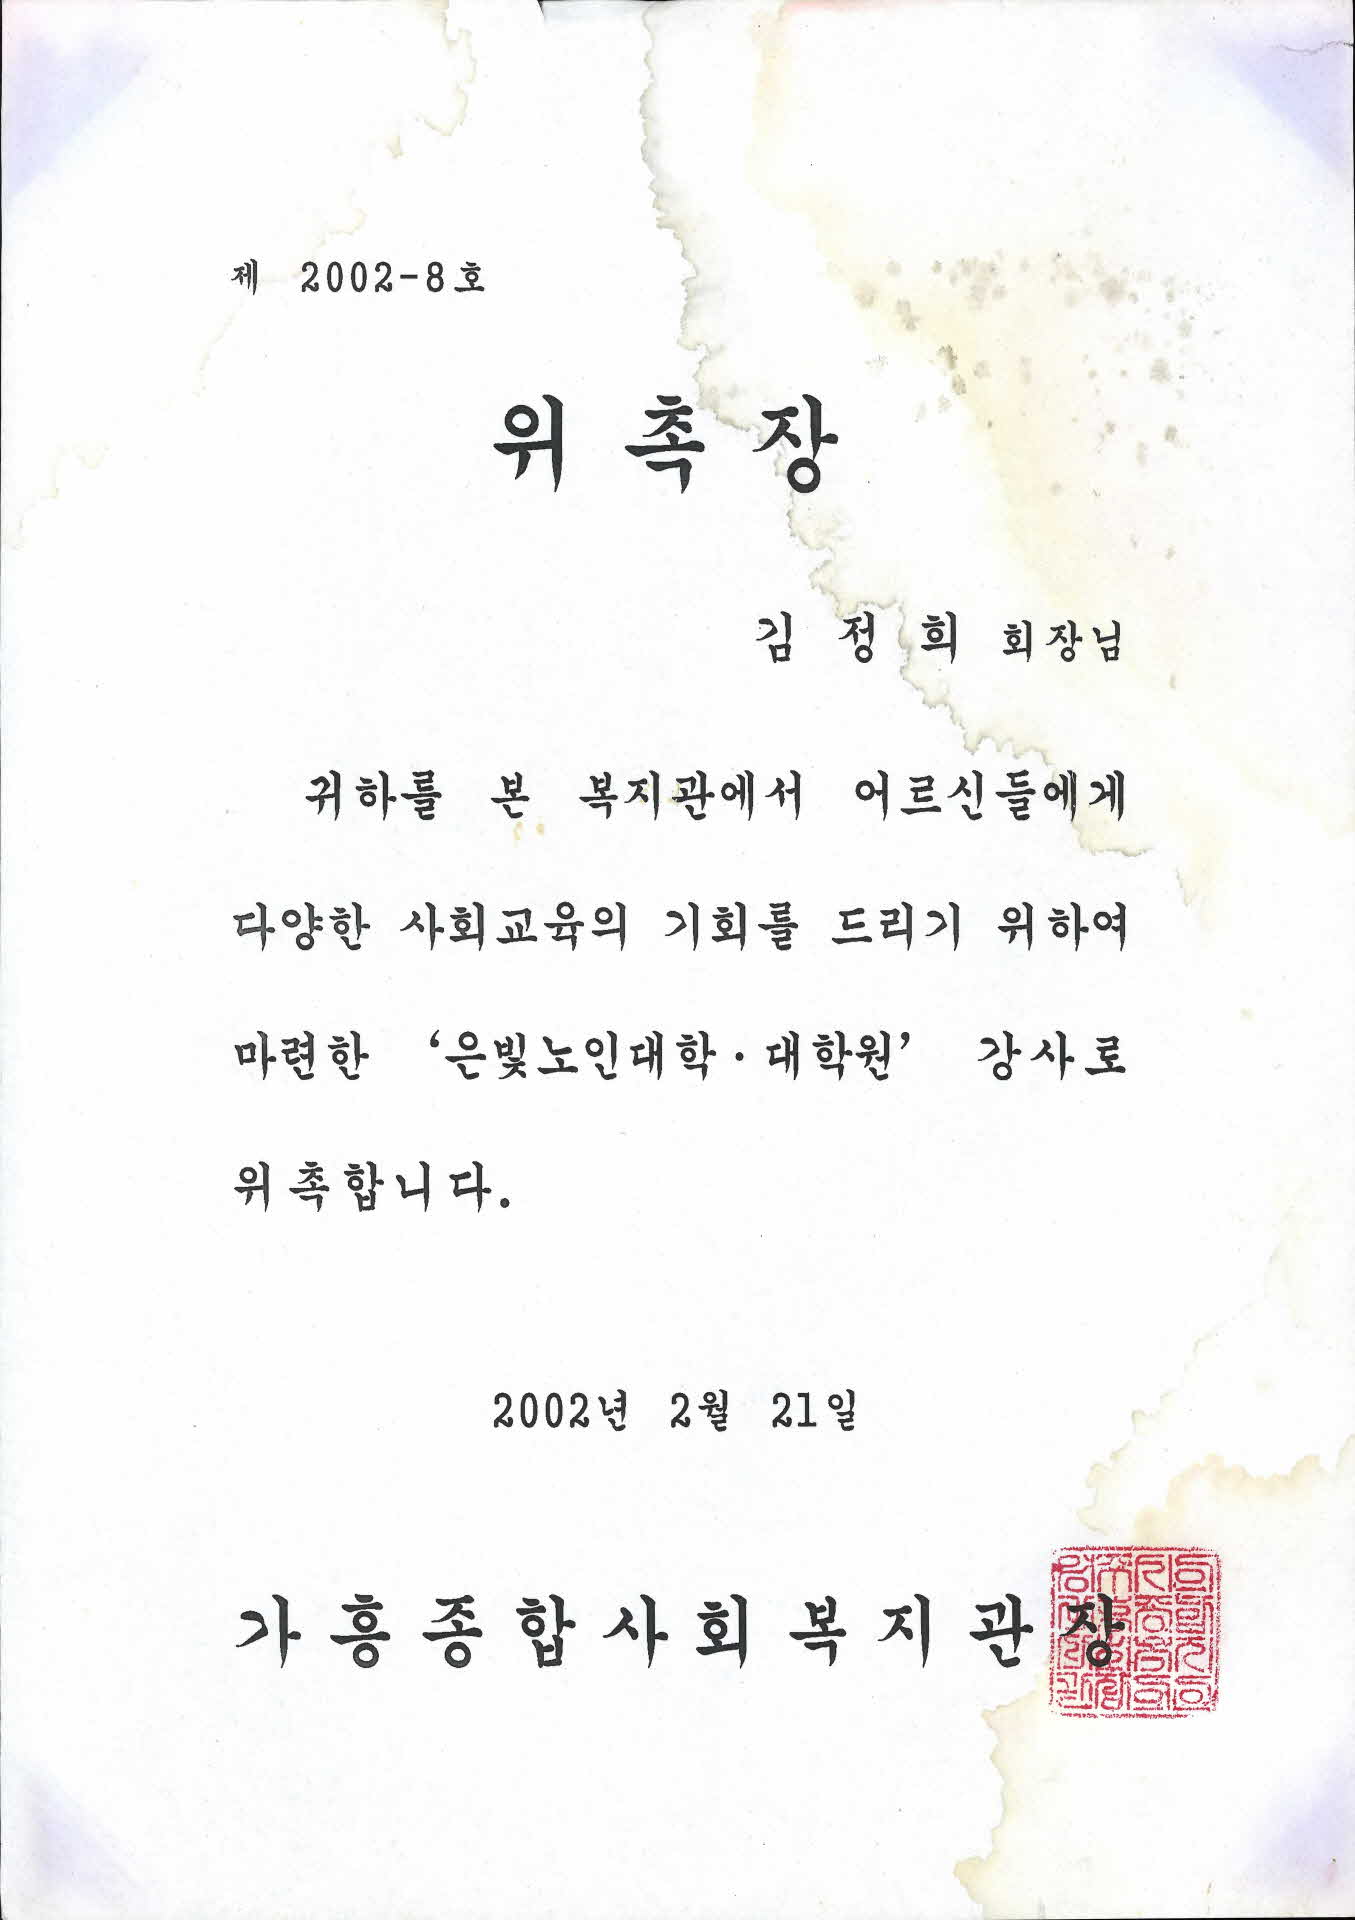 제 2002-8호
위 촉 장
김 정 희 회장님
귀하를 본 복지관에서 어르신들에게
다양한 사회교육의 기회를 드리기 위하여
마련한 ‘은빛노인대학·대학원’ 강사로
위촉합니다.
2002년 2월 21일
가흥종합사회복지관장